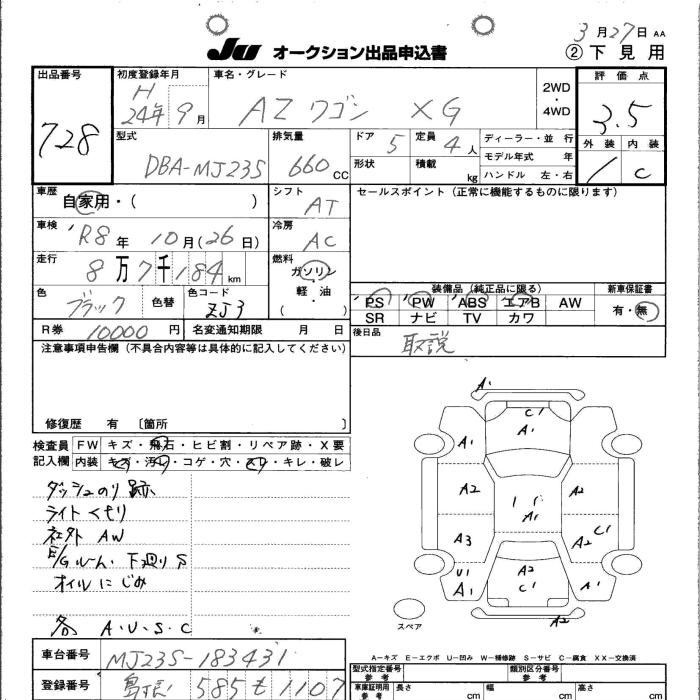 3月27日 AA
JU オークション出品申込書 ②下見用
出品番号 728
初度登録年月 H 24年 9月
車名・グレード AZワゴン XG
2WD・4WD
評価点 3.5
外装 内装
1 C
型式 DBA-MJ23S
排気量 660 CC
ドア 5
定員 4人
形状 積載 kg
ディーラー・並行
モデル年式 年
ハンドル 左・右
車歴 自家用・( )
シフト AT
セールスポイント（正常に機能するものに限ります）
車検 'R8年 10月(26日)
冷房 AC
走行 8万7千184 km
燃料 ガソリン
軽・油
( )
色 ブラック 色替 色コード ZJ3
装備品（純正品に限る） 新車保証書
PS PW ABS エアB AW 有・無
SR ナビ TV カワ
R券 10000円 名変通知期限 月 日
後日品 取説
注意事項申告欄（不具合内容等は具体的に記入してください）
修復歴 有 〔箇所 〕
検査員記入欄
FW キズ・飛石・ヒビ割・リペア跡・X要
内装 キズ・汚レ・コゲ・穴・スレ・キレ・破レ
ダッシュのり跡
ライトくもり
社外 AW
E/Gルーム、下廻りS
オイルにじみ
各 A・U・S・C
A1
C1
A1
A1
A1
A2
A2
A1
A3
C1
A2
U1
A1
A2
C1
A1
A2
スペア
A－キズ E－エクボ U－凹み W－補修跡 S－サビ C－腐食 XX－交換済
車台番号 MJ23S-183431
型式指定番号 参考 類別区分番号 参考
登録番号 585 せ 1107
車庫証明用 参考 長さ 幅 高さ cm